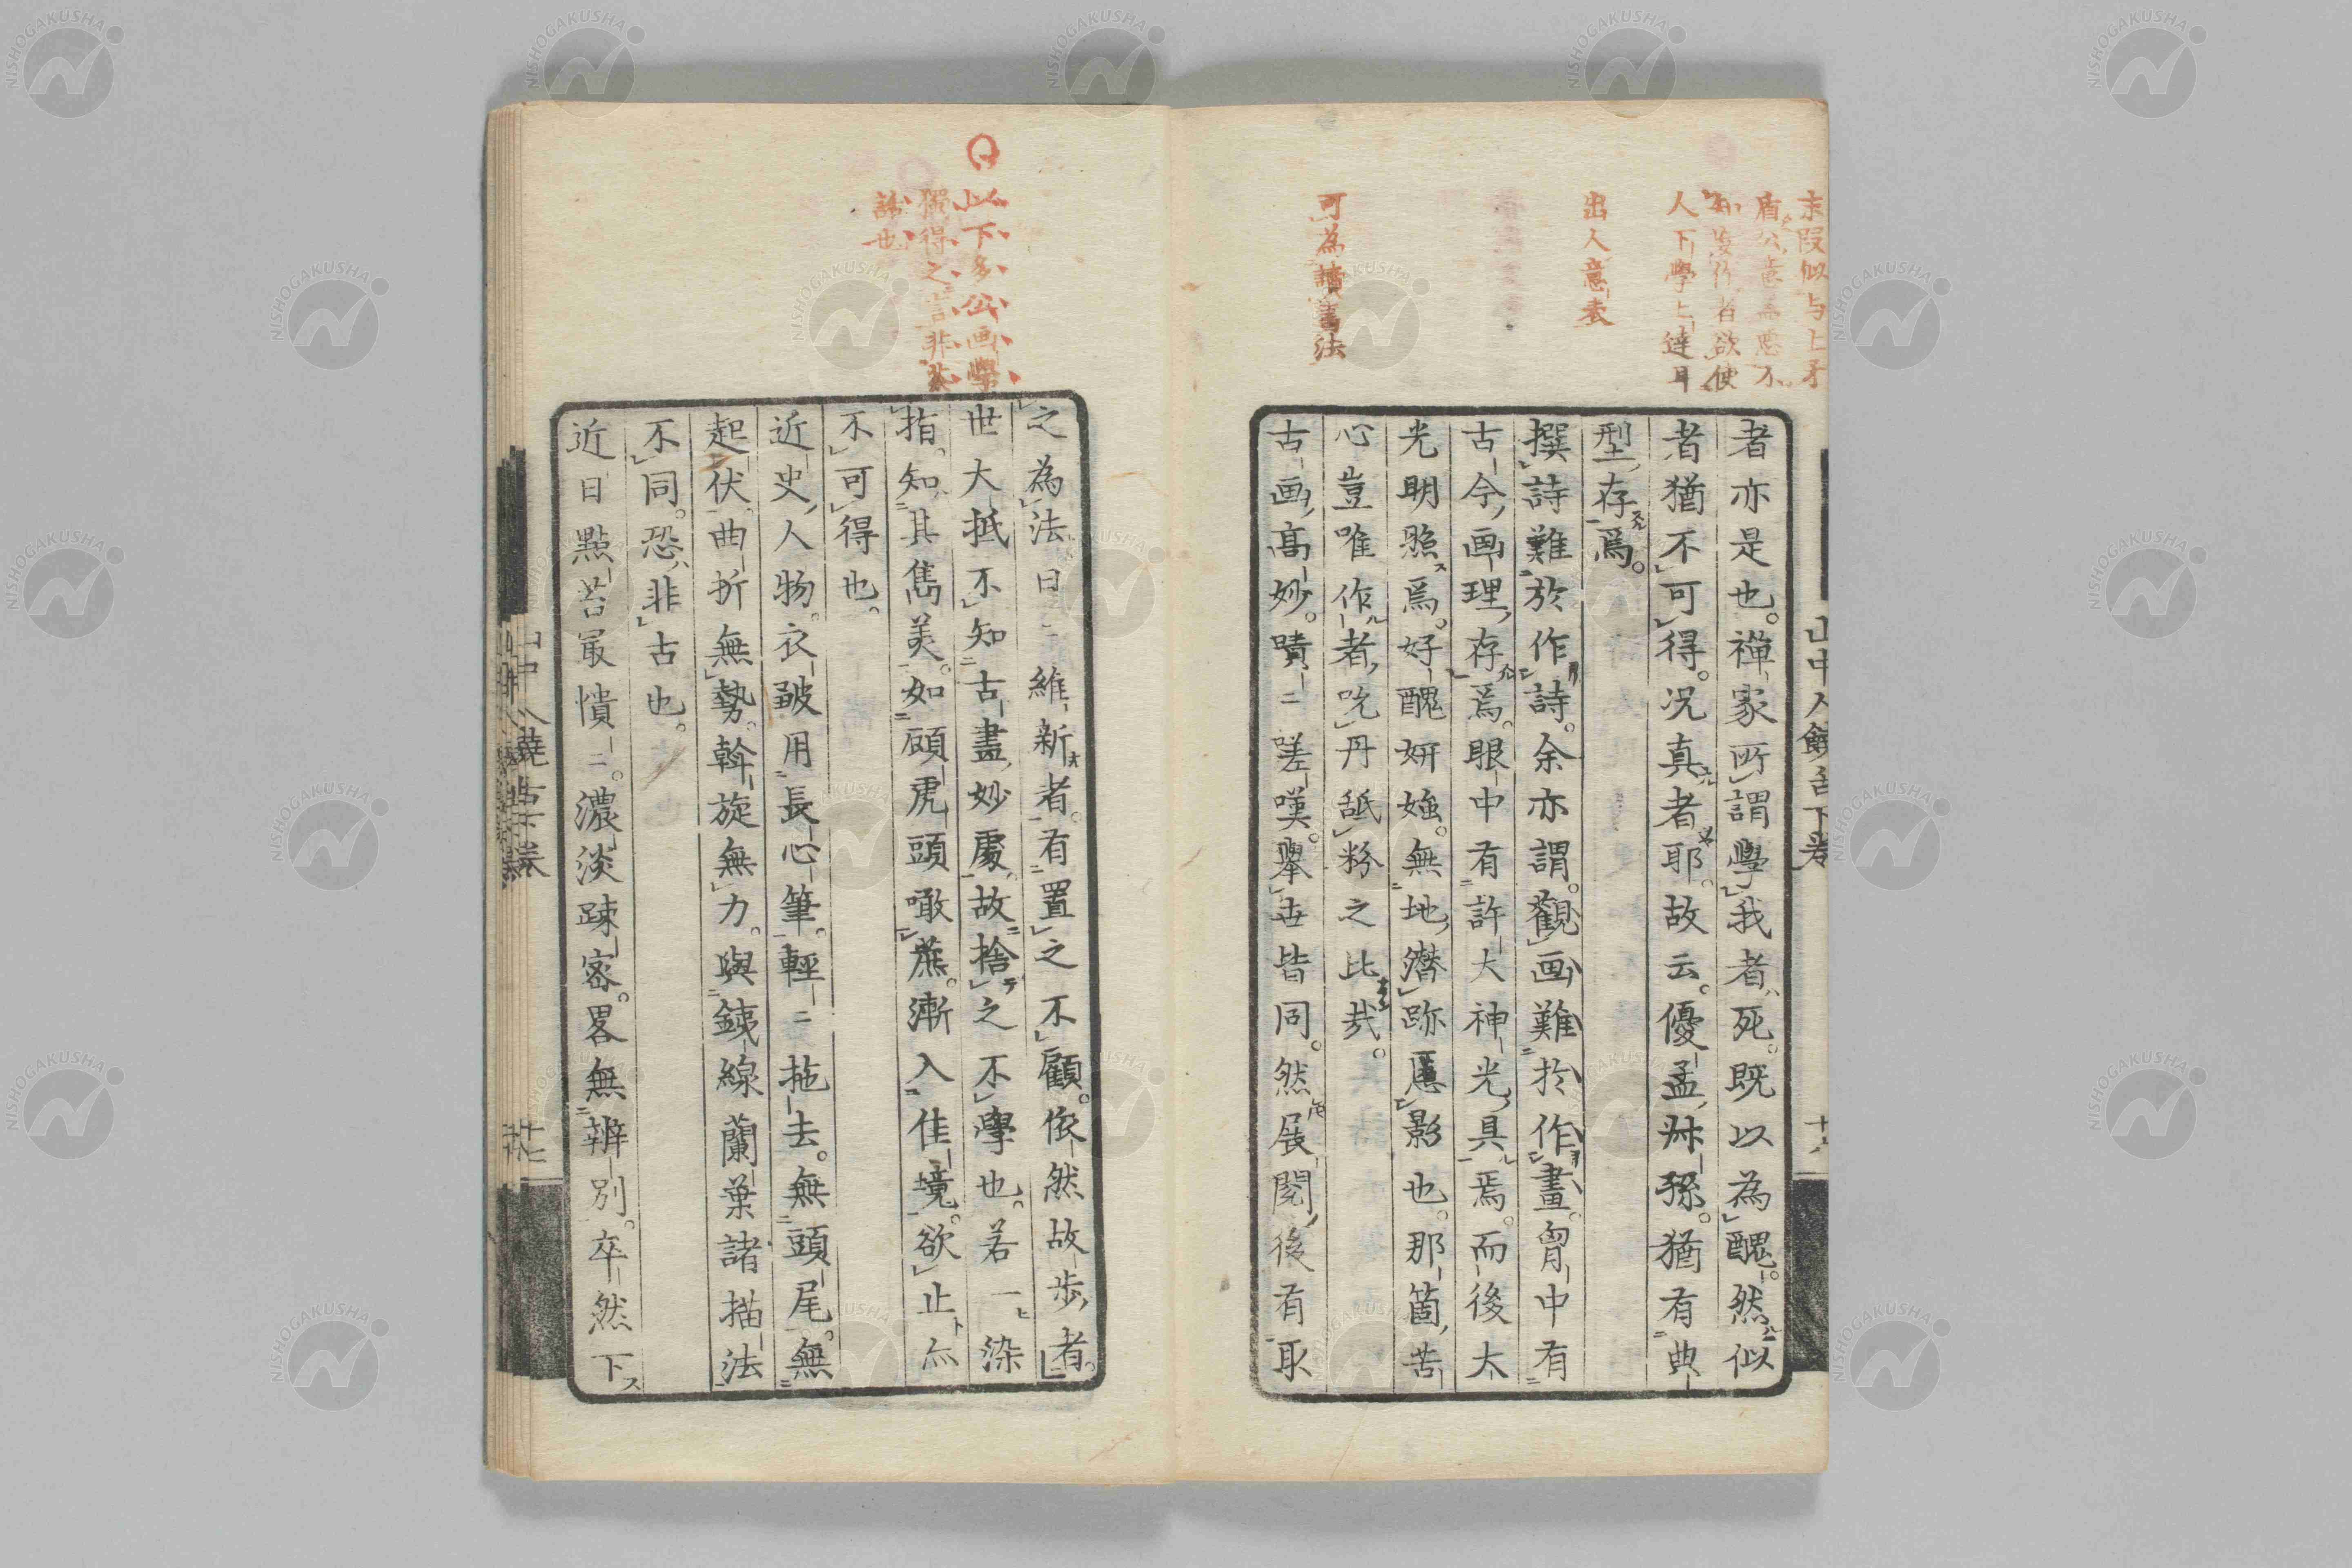 末段似与上矛
盾公意

人下學上達耳
出人意表
可為讀書法
山中人饒舌下卷
者亦是也。禅家所謂學我者死。既以為醜。然似
者猶不可得。况真者耶。故云。優孟舛孫。猶有典
型存焉。
撰詩難於作詩。余亦謂。觀画難於作畫。胷中有
古今画理存焉。眼中有許大神光具焉。而後太
光明照焉。好醜妍媸。無地潜跡慝影也。那箇苦
心豈唯作者吮丹舐粉之比哉。
古画高妙。嘖二嗟嘆。舉世皆同。然展閲後有取
以下多公画學
獨得之言非

之為法曰二維新者。有置之不顧。依然故歩者。
世大抵不知古畫妙處。故捨之不學也。若一染
指。知其雋美。如頋虎頭噉蔗。漸入佳境。欲止亦
不可得也。
近史人物。衣皺用長心筆。輕二拖去。無頭尾。無
起伏。曲折無勢。斡旋無力。與銕線蘭葉諸描法
不同。恐非古也。
近日點苔最憒二。濃淡踈密。畧無辨別。卒然下